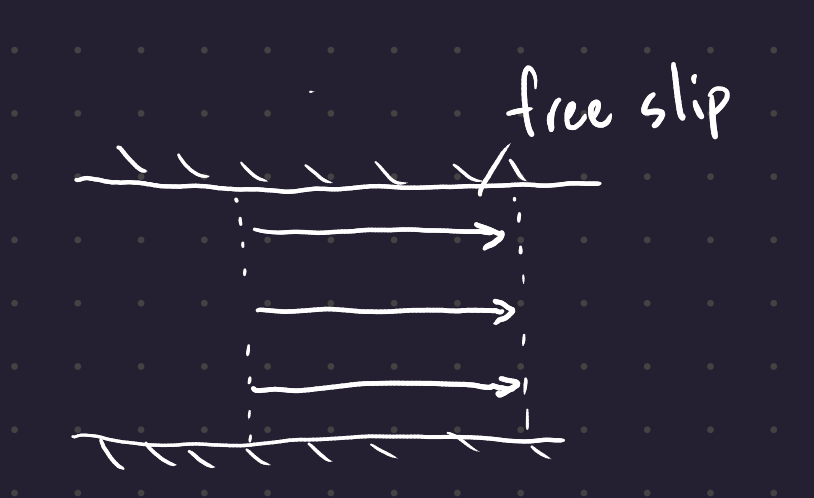 free slip